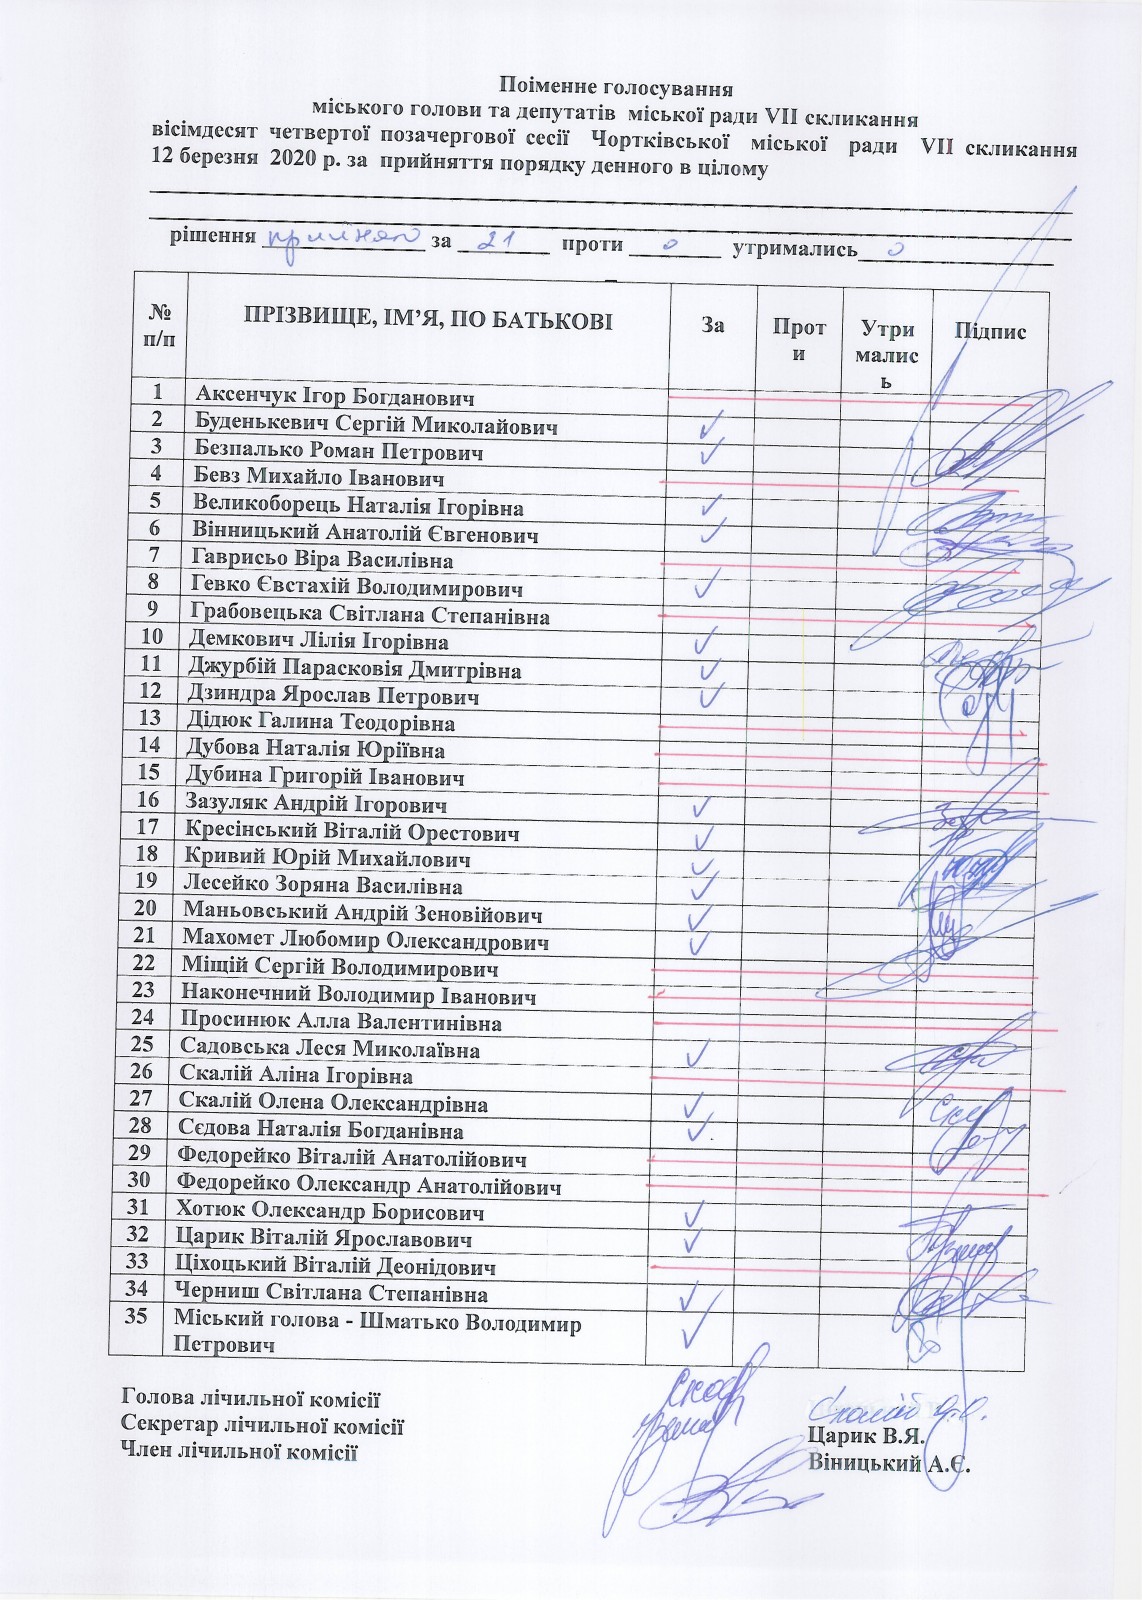 Поіменне голосування
міського голови та депутатів міської ради VII скликання
вісімдесят четвертої позачергової сесії Чортківської міської ради VII скликання
12 березня 2020 р. за прийняття порядку денного в цілому
рішення прийнято за 21 проти 0 утримались 0
№ п/п ПРІЗВИЩЕ, ІМ’Я, ПО БАТЬКОВІ За Проти Утримались Підпис
1 Аксенчук Ігор Богданович
2 Буденькевич Сергій Миколайович
3 Безпалько Роман Петрович
4 Бевз Михайло Іванович
5 Великоборець Наталія Ігорівна
6 Вінницький Анатолій Євгенович
7 Гаврисьо Віра Василівна
8 Гевко Євстахій Володимирович
9 Грабовецька Світлана Степанівна
10 Демкович Лілія Ігорівна
11 Джурбій Парасковія Дмитрівна
12 Дзиндра Ярослав Петрович
13 Дідюк Галина Теодорівна
14 Дубова Наталія Юріївна
15 Дубина Григорій Іванович
16 Зазуляк Андрій Ігорович
17 Кресінський Віталій Орестович
18 Кривий Юрій Михайлович
19 Лесейко Зоряна Василівна
20 Маньовський Андрій Зеновійович
21 Махомет Любомир Олександрович
22 Міщій Сергій Володимирович
23 Наконечний Володимир Іванович
24 Просинюк Алла Валентинівна
25 Садовська Леся Миколаївна
26 Скалій Аліна Ігорівна
27 Скалій Олена Олександрівна
28 Сєдова Наталія Богданівна
29 Федорейко Віталій Анатолійович
30 Федорейко Олександр Анатолійович
31 Хотюк Олександр Борисович
32 Царик Віталій Ярославович
33 Ціхоцький Віталій Деонідович
34 Черниш Світлана Степанівна
35 Міський голова - Шматько Володимир
Петрович
Голова лічильної комісії Скалій О.О.
Секретар лічильної комісії Царик В.Я.
Член лічильної комісії Віницький А.Є.